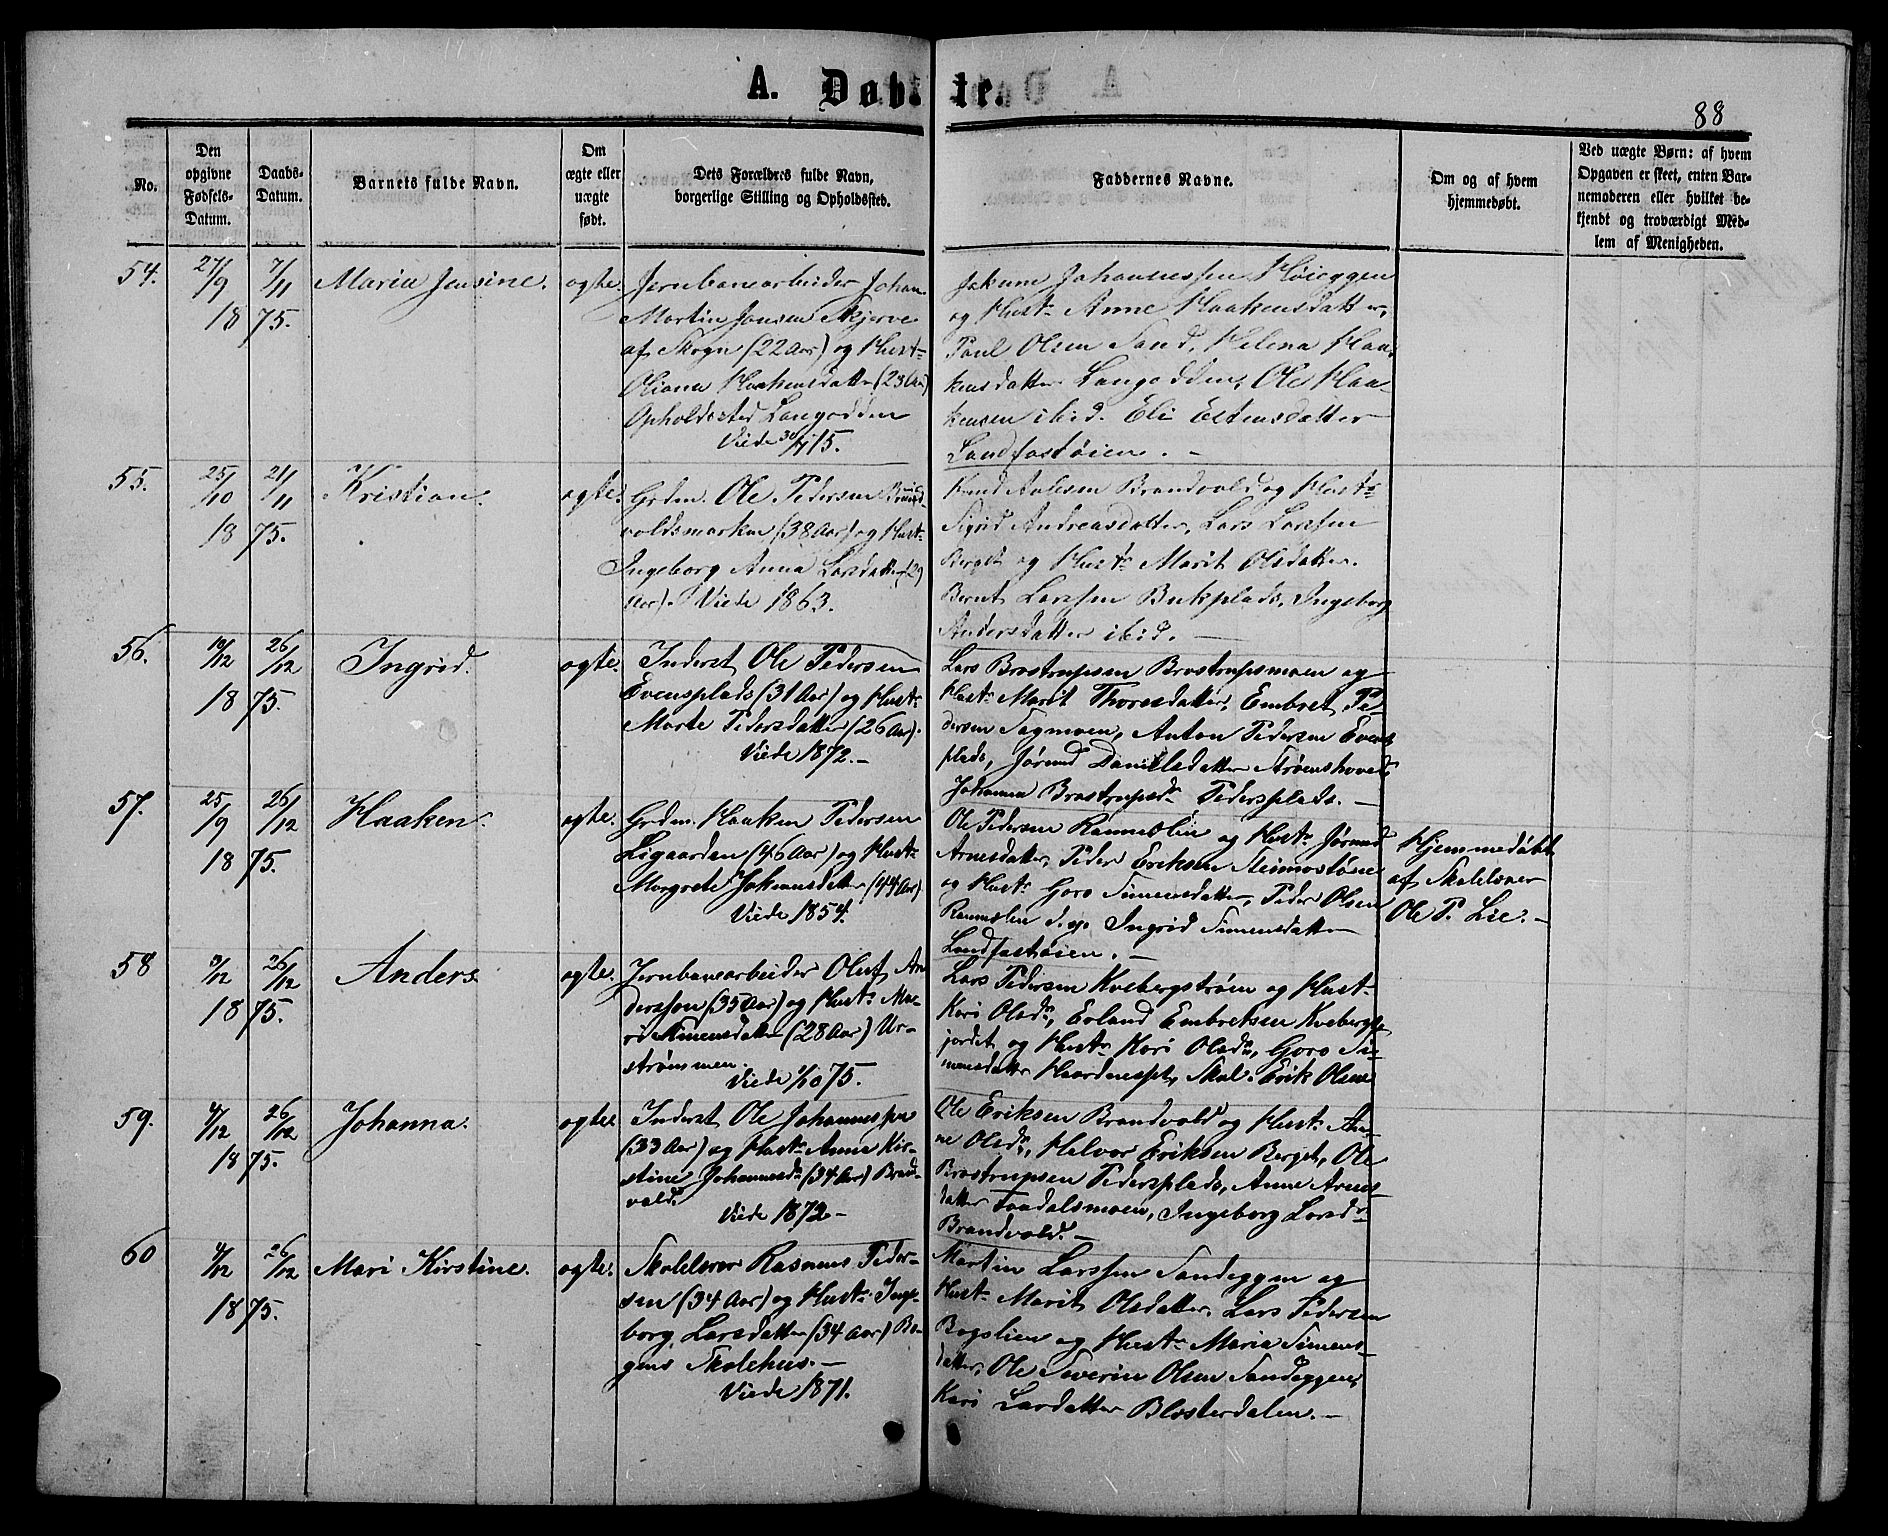 A. Døbte.
88
No.
Den
opgivne
Fødsels-
Datum.
Daabs-
Datum.
Barnets fulde Navn.
Om
ægte eller
uægte
født.
Dets Forældres fulde Navn,
borgerlige Stilling og Opholdssted.
Faddernes Navne.
Om og af hvem
hjemmedøbt.
Ved uægte Børn: af hvem
Opgaven er skeet, enten Bar-
nemoderen eller hvilket be-
kjendt og troværdigt Med-
lem af Menigheden.
54. 27/9 7/11 1875. Maria Jensine. ægte.
Jernbanearbeider Johan
Martin Jonsen Skjerve
af Skogn (22 Aar) og Hust.
Oliana Haakensdatter (23 Aar)
Opholdssted Langodden
Viede 30/4 75.
Johannessen Høieggen
og Hustr. Anne Haakensdatter,
Paul Olsen Sand, Helena Haa-
kensdatter Langodden, Ole Haa-
kensen ibid. Eli Estensdatter
Landfastøien. —
55. 25/10 21/11 1875. Kristian. ægte.
Grdm. Ole Pedersen Brand-
voldsmarken (38 Aar) og Hust.
Ingeborg Anna Larsdatter (29
Aar). Viede 1863.
Brandvold og Hustr.
Sigrid Andreasdatter, Lars Larssen
Berget og Hustr. Marit Olsdatter.
Bernt Larssen Bukplads, Ingeborg
Andersdatter ibid. —
56. 10/12 26/12 1875. Ingrid. ægte.
Inderst Ole Pedersen
Evensplads (31 Aar) og Hustr.
Marte Pedersdatter (26 Aar).
Viede 1872. —
Lars Brostrupsen Brostrupsmoen og
Hustr. Marit Thoresdatter, Embret Pe-
dersen Sagmoen, Anton Pedersen Evens-
plads, Jørund Danielsdatter Strømshoved,
Johanna Brostrupsdr. Pedersplads. —
57. 25/9 26/12 1875. Haaken. ægte.
Grdm. Haaken Pedersen
Ligaarden (46 Aar) og Hustr.
Margrete Johansdatter (44 Aar)
Viede 1854.
Ole Pedersen og Hustr. Jørund
Arnesdatter, Peder Eriksen
og Hustr. Goro Simensdatter, Peder Olsen
Ingrid Simensdatter
Landfastøien. —
Hjemmedøbt
af Skolelærer
Ole P. Lie. —
58 3/12 26/12 1875. Anders ægte.
Jernbanearbeider Oluf An-
derssen (35 Aar) og Hustr. Ma-
ri Simensdatter (28 Aar) Ur-
strømmen.
Viede 1/10 75.
Lars Pedersen Kvebergstrøen og Hustr.
Kari Olsdr., Erland Embretsen Kvebergs-
jordet og Hustr. Kari Olsdr., Goro Si-
mensdatter Haardenespl., Skol. Erik Olsen
59. 4/12 26/12 1875. Johanna. ægte.
Inderst Ole Johannessen
(33 Aar) og Hustr. Anne Kir-
stine Johannesdr. (34 Aar) Brand-
vold.
Viede 1872 —
Ole Eriksen Brandvold og Hustr. An-
ne Olsdr., Helvor Eriksen Berget, Ole
Brostrupsen Pedersplads, Anne Arnes-
datter Foadalsmoen, Ingeborg Larsdr.
Brandvold. —
60 4/12 26/12 1875. Mari Kirstine. ægte.
Skolelærer Rasmus Peder-
sen (34 Aar) og Hustr. Inge-
borg Larsdatter (34 Aar) Bo-
gens Skolehus. —
Viede 1871.
Martin Larssen Sandeggen og
Hustr. Marit Olsdatter, Lars Pedersen
Bogslien og Hustr. Maria Simens-
datter, Ole Severin Olsen Sandeggen,
Kari Larsdatter Blesterdalen. —